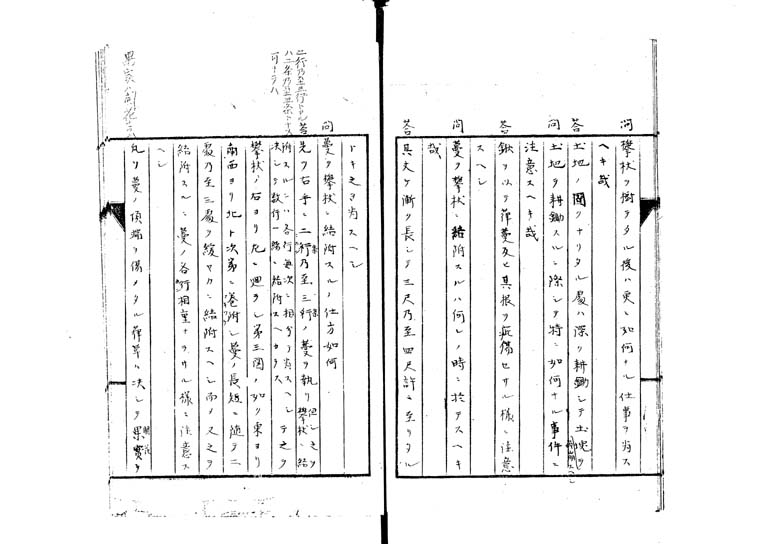 問 攀状ヲ樹テタル後ハ更ニ如何ナル仕事ヲ為ス
ヘキ哉
答 土地ノ固クナリタル處ハ深ク耕鋤シテ土塊ヲ
問 土地ヲ耕鋤スルニ際シテ特ニ如何ナル事件ニ
注意スヘキ哉
答 鍬ヲ以テ葎蔓及ヒ其根ヲ疵傷セサル様ニ注意
スヘシ
問 蔓ヲ攀状ニ結附スルハ何レノ時ニ於テスヘキ
哉
答 其丈ケ漸ク長シテ三尺乃至四尺許ニ至リタル
トキ之ヲ為スヘシ
問 蔓ヲ攀状ニ結附スルノ仕方如何
答 先ツ右手ニ二行乃至三行ノ蔓ヲ執リ攀状ニ結
但シ之ヲ
附スルニハ各行毎次ニ相分テ為スヘシテ之ヲ
決シテ数行一緒ニ結附スヘカラス
攀状ノ右ヨリ左ニ廻ラシ第三図ノ如ク東ヨリ
南西ヨリ北ト次第ニ巻附シ蔓ノ長短ニ随テ二
處乃至三處ヲ緩ヤカニ結附スヘシ而ノ又之ヲ
結附スルニ蔓ノ各行相重ナラサル様ニ注意ス
ヘシ
凡ソ蔓ノ頂端ヲ傷メタル葎草ハ決シテ果實ヲ